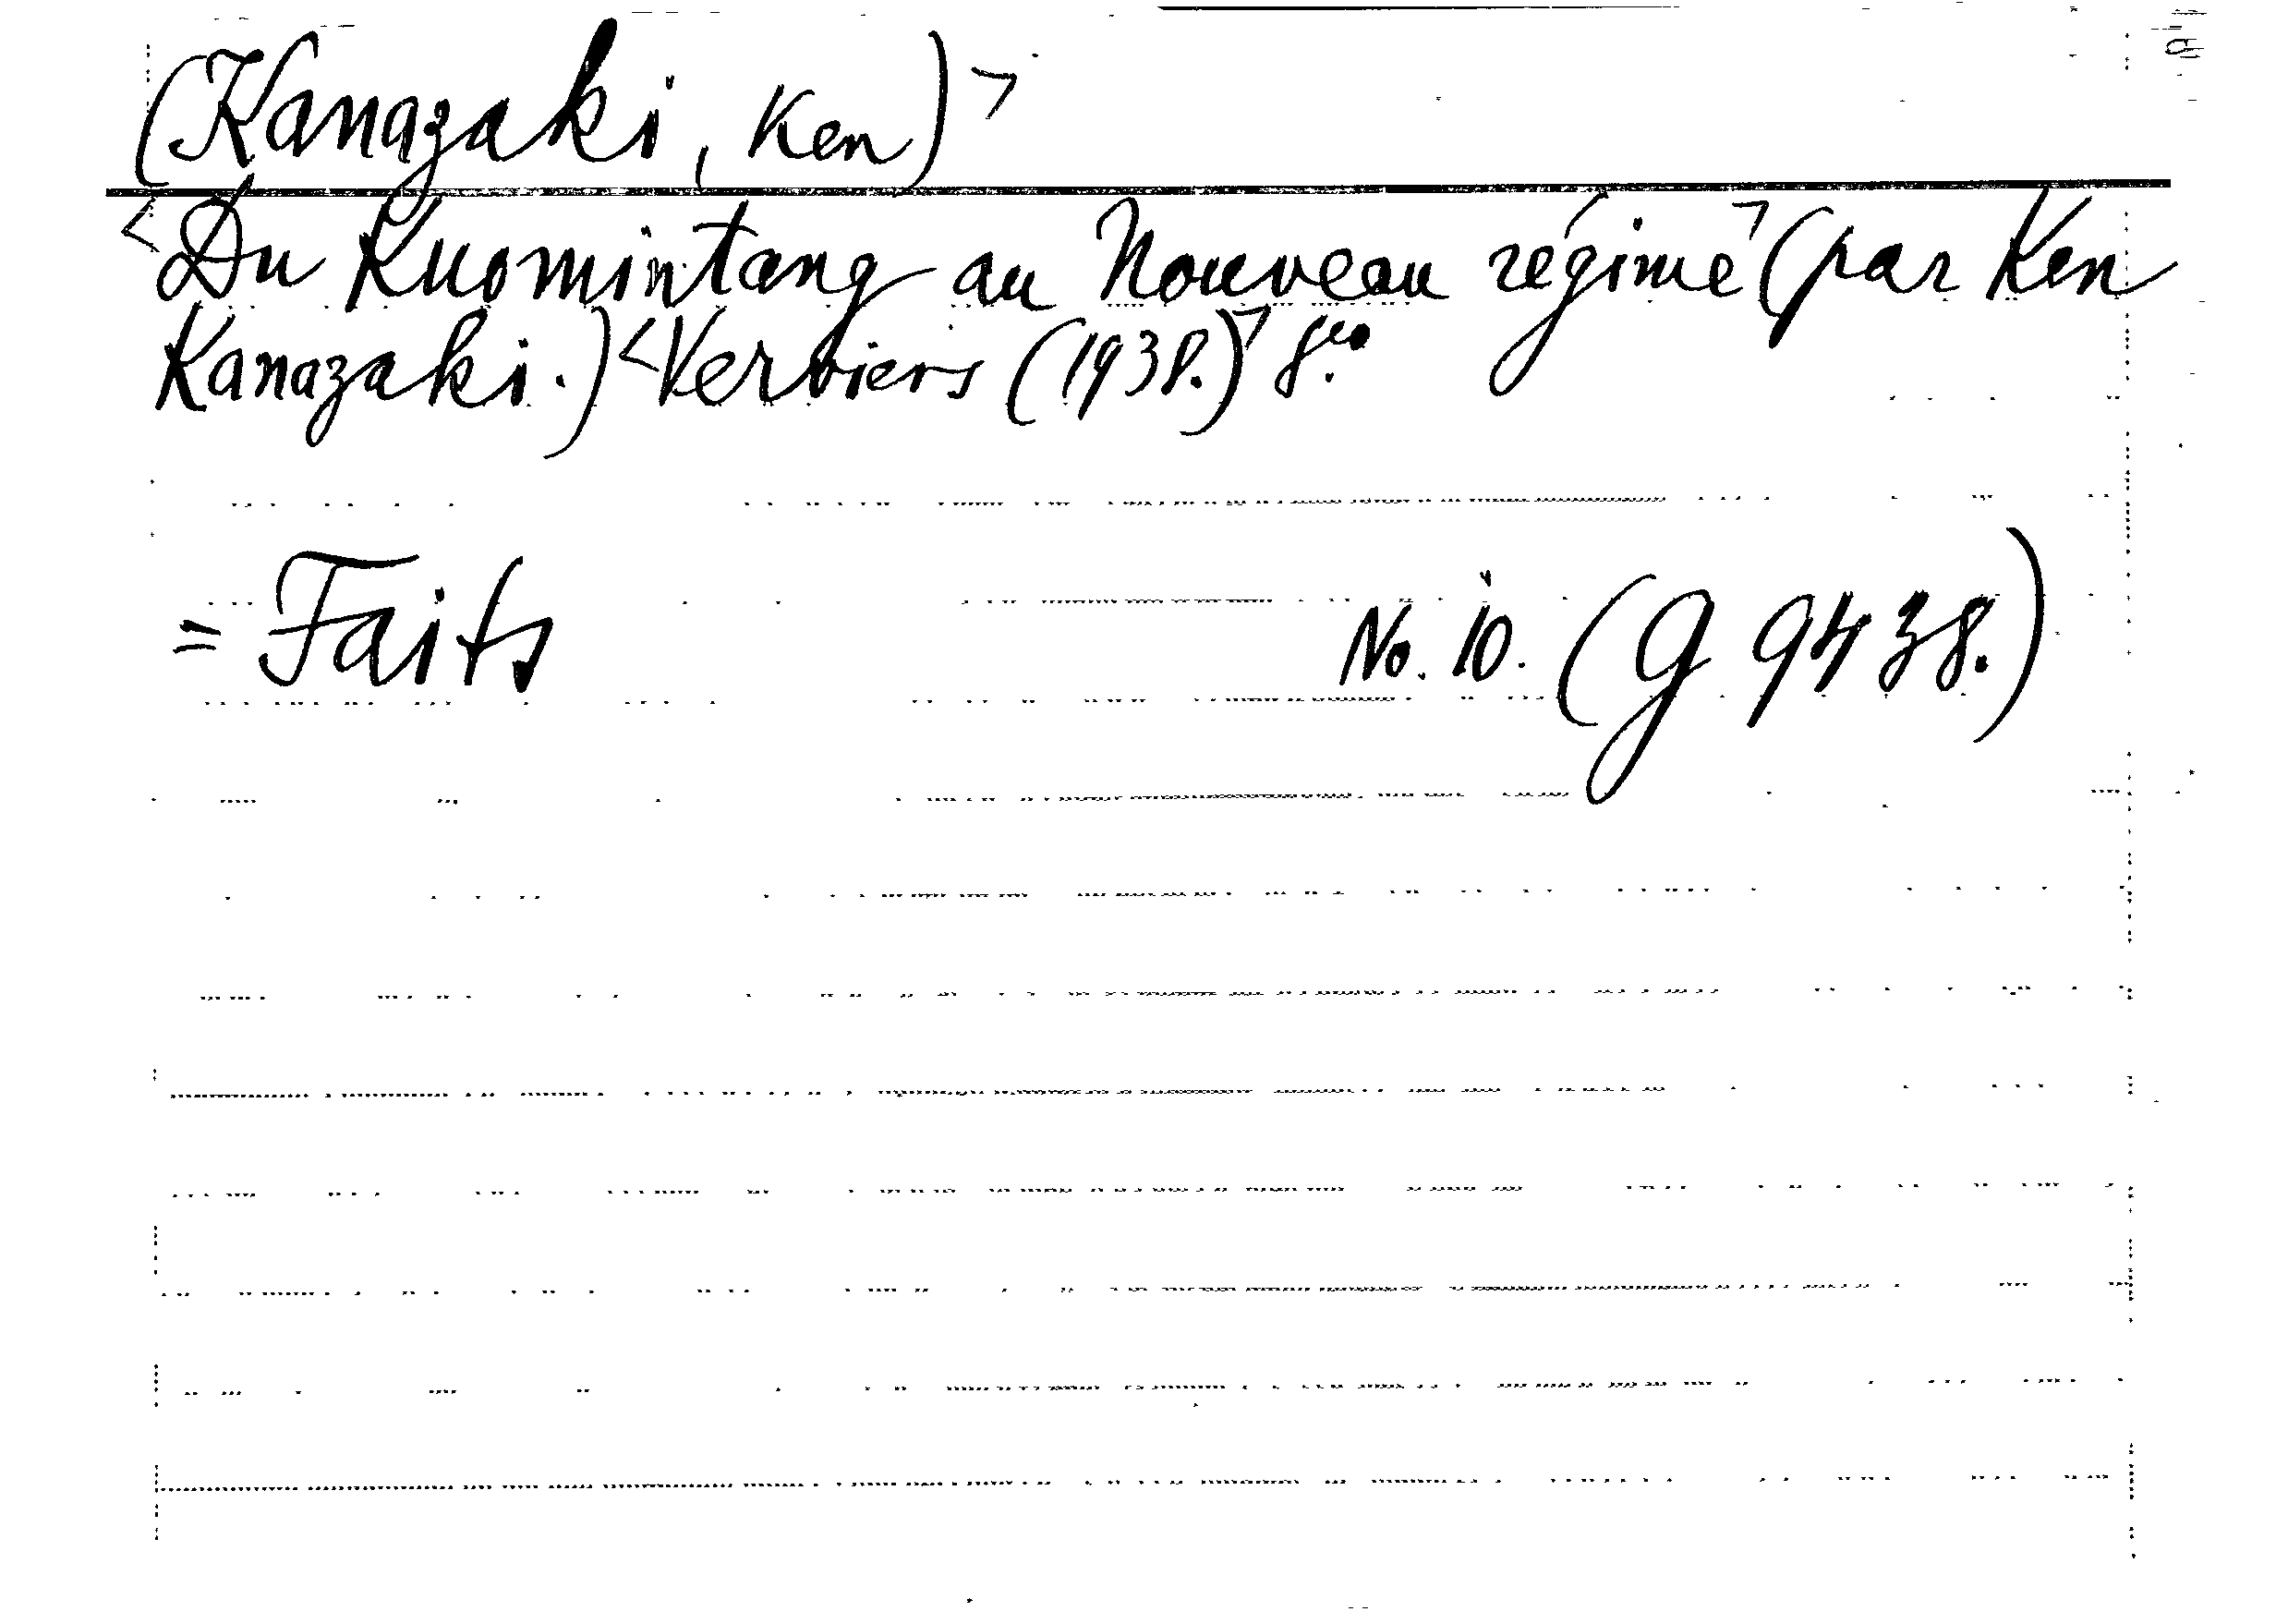 (Kanazaki, Ken)>
<Du Kuomintang au Nouveau régime> (par Ken
Kanazaki.) <Verviers (1938.)> 8.vo
= Faits No. 10. (G 9438.)